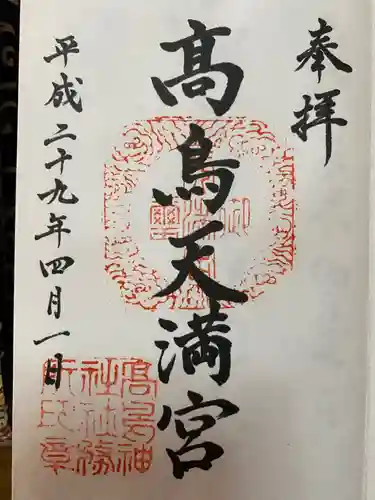 奉拝
髙鳥天満宮
平成二十九年四月一日
高鳥神
社社務
所印章